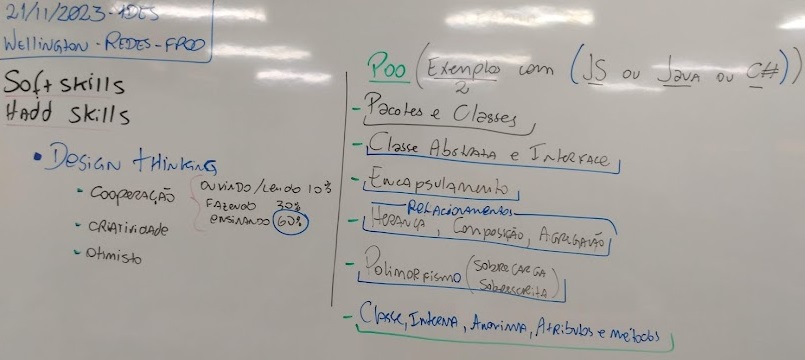 21/11/2023-1DES
Wellington-Redes-FPOO
Soft skills
Hadd skills
• Design thinking
- Cooperação
ouvindo/Lendo 10%
Fazendo 30%
ensinando 60%
- Criatividade
- otimisto
POO (Exemplo com (JS ou Java ou C#))
2
- Pacotes e Classes
- Classe Abstrata e Interface
- Encapsulamento
- Relacionamentos -
- Herança, Composição, Agregação
- Polimorfismo (Sobrecarga
Sobrescrita)
- Classe, Interna, Anonima, Atributos e métodos